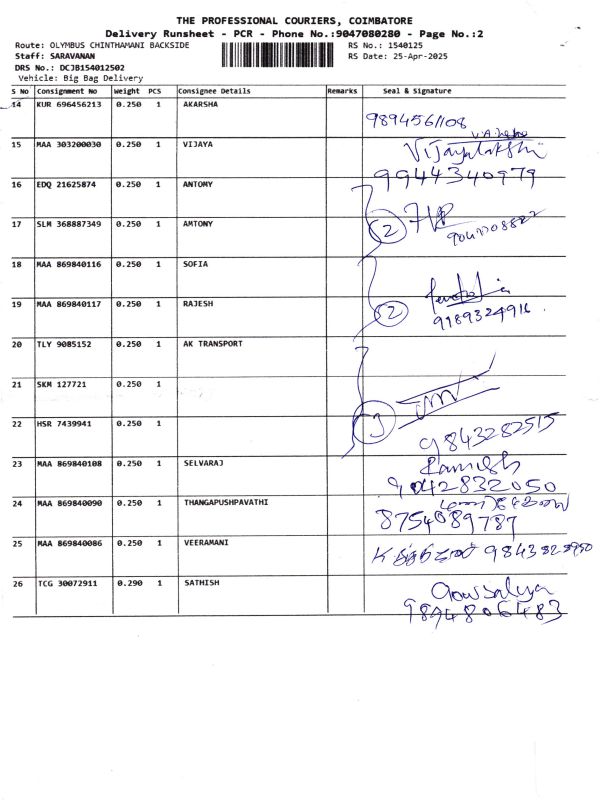 THE PROFESSIONAL COURIERS, COIMBATORE
Delivery Runsheet - PCR - Phone No.:9047080280 - Page No.:2
Route: OLYMBUS CHINTHAMANI BACKSIDE RS No.: 1540125
Staff: SARAVANAN RS Date: 25-Apr-2025
DRS No.: DCJB154012502
Vehicle: Big Bag Delivery
S No Consignment No Weight PCS Consignee Details Remarks Seal & Signature
14 KUR 696456213 0.250 1 AKARSHA
9894561108
15 MAA 303200030 0.250 1 VIJAYA Vijayalakshi
9944340979
16 EDQ 21625874 0.250 1 ANTOMY
17 SLM 368887349 0.250 1 AMTONY 2
18 MAA 869840116 0.250 1 SOFIA
19 MAA 869840117 0.250 1 RAJESH 2 9189324916
20 TLY 9085152 0.250 1 AK TRANSPORT
21 SKM 127721 0.250 1
22 HSR 7439941 0.250 1 3 9843282515
23 MAA 869840108 0.250 1 SELVARAJ Ramesh
9042832050
24 MAA 869840090 0.250 1 THANGAPUSHPAVATHI 8754089787
25 MAA 869840086 0.250 1 VEERAMANI
26 TCG 30072911 0.290 1 SATHISH Gowsalya
9894806483